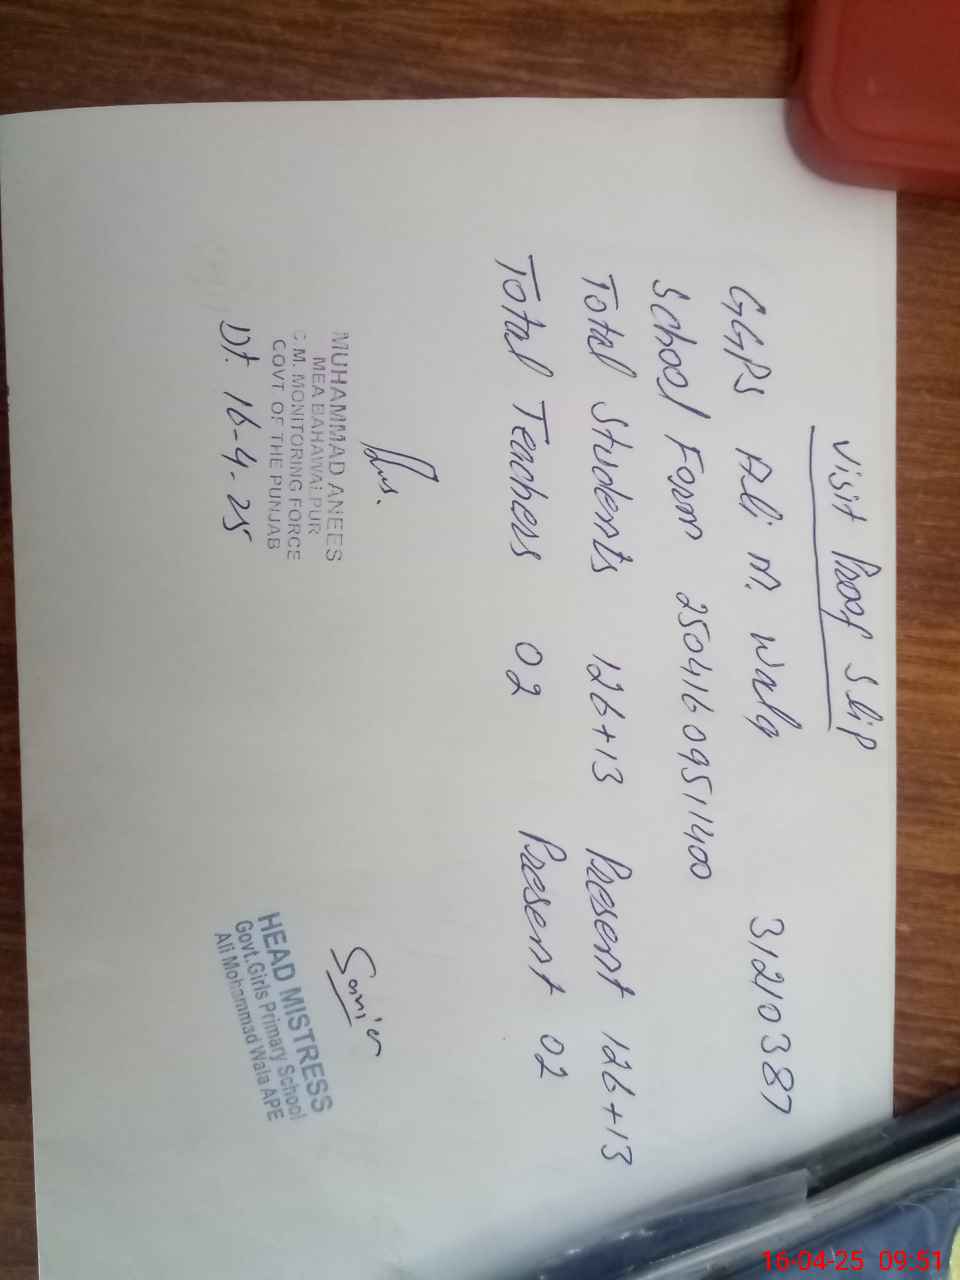 Visit Proof Slip
GGPS Ali M. Wala 31210387
School Form 2504160951400
Total Students 126+13 Present 126+13
Total Teachers 02 Present 02
MUHAMMAD ANEES
MEA BAHAWALPUR
C.M. MONITORING FORCE
GOVT OF THE PUNJAB
Dt. 16-4-25
HEAD MISTRESS
Govt. Girls Primary School
Ali Mohammad Wala APE
16-04-25 09:51